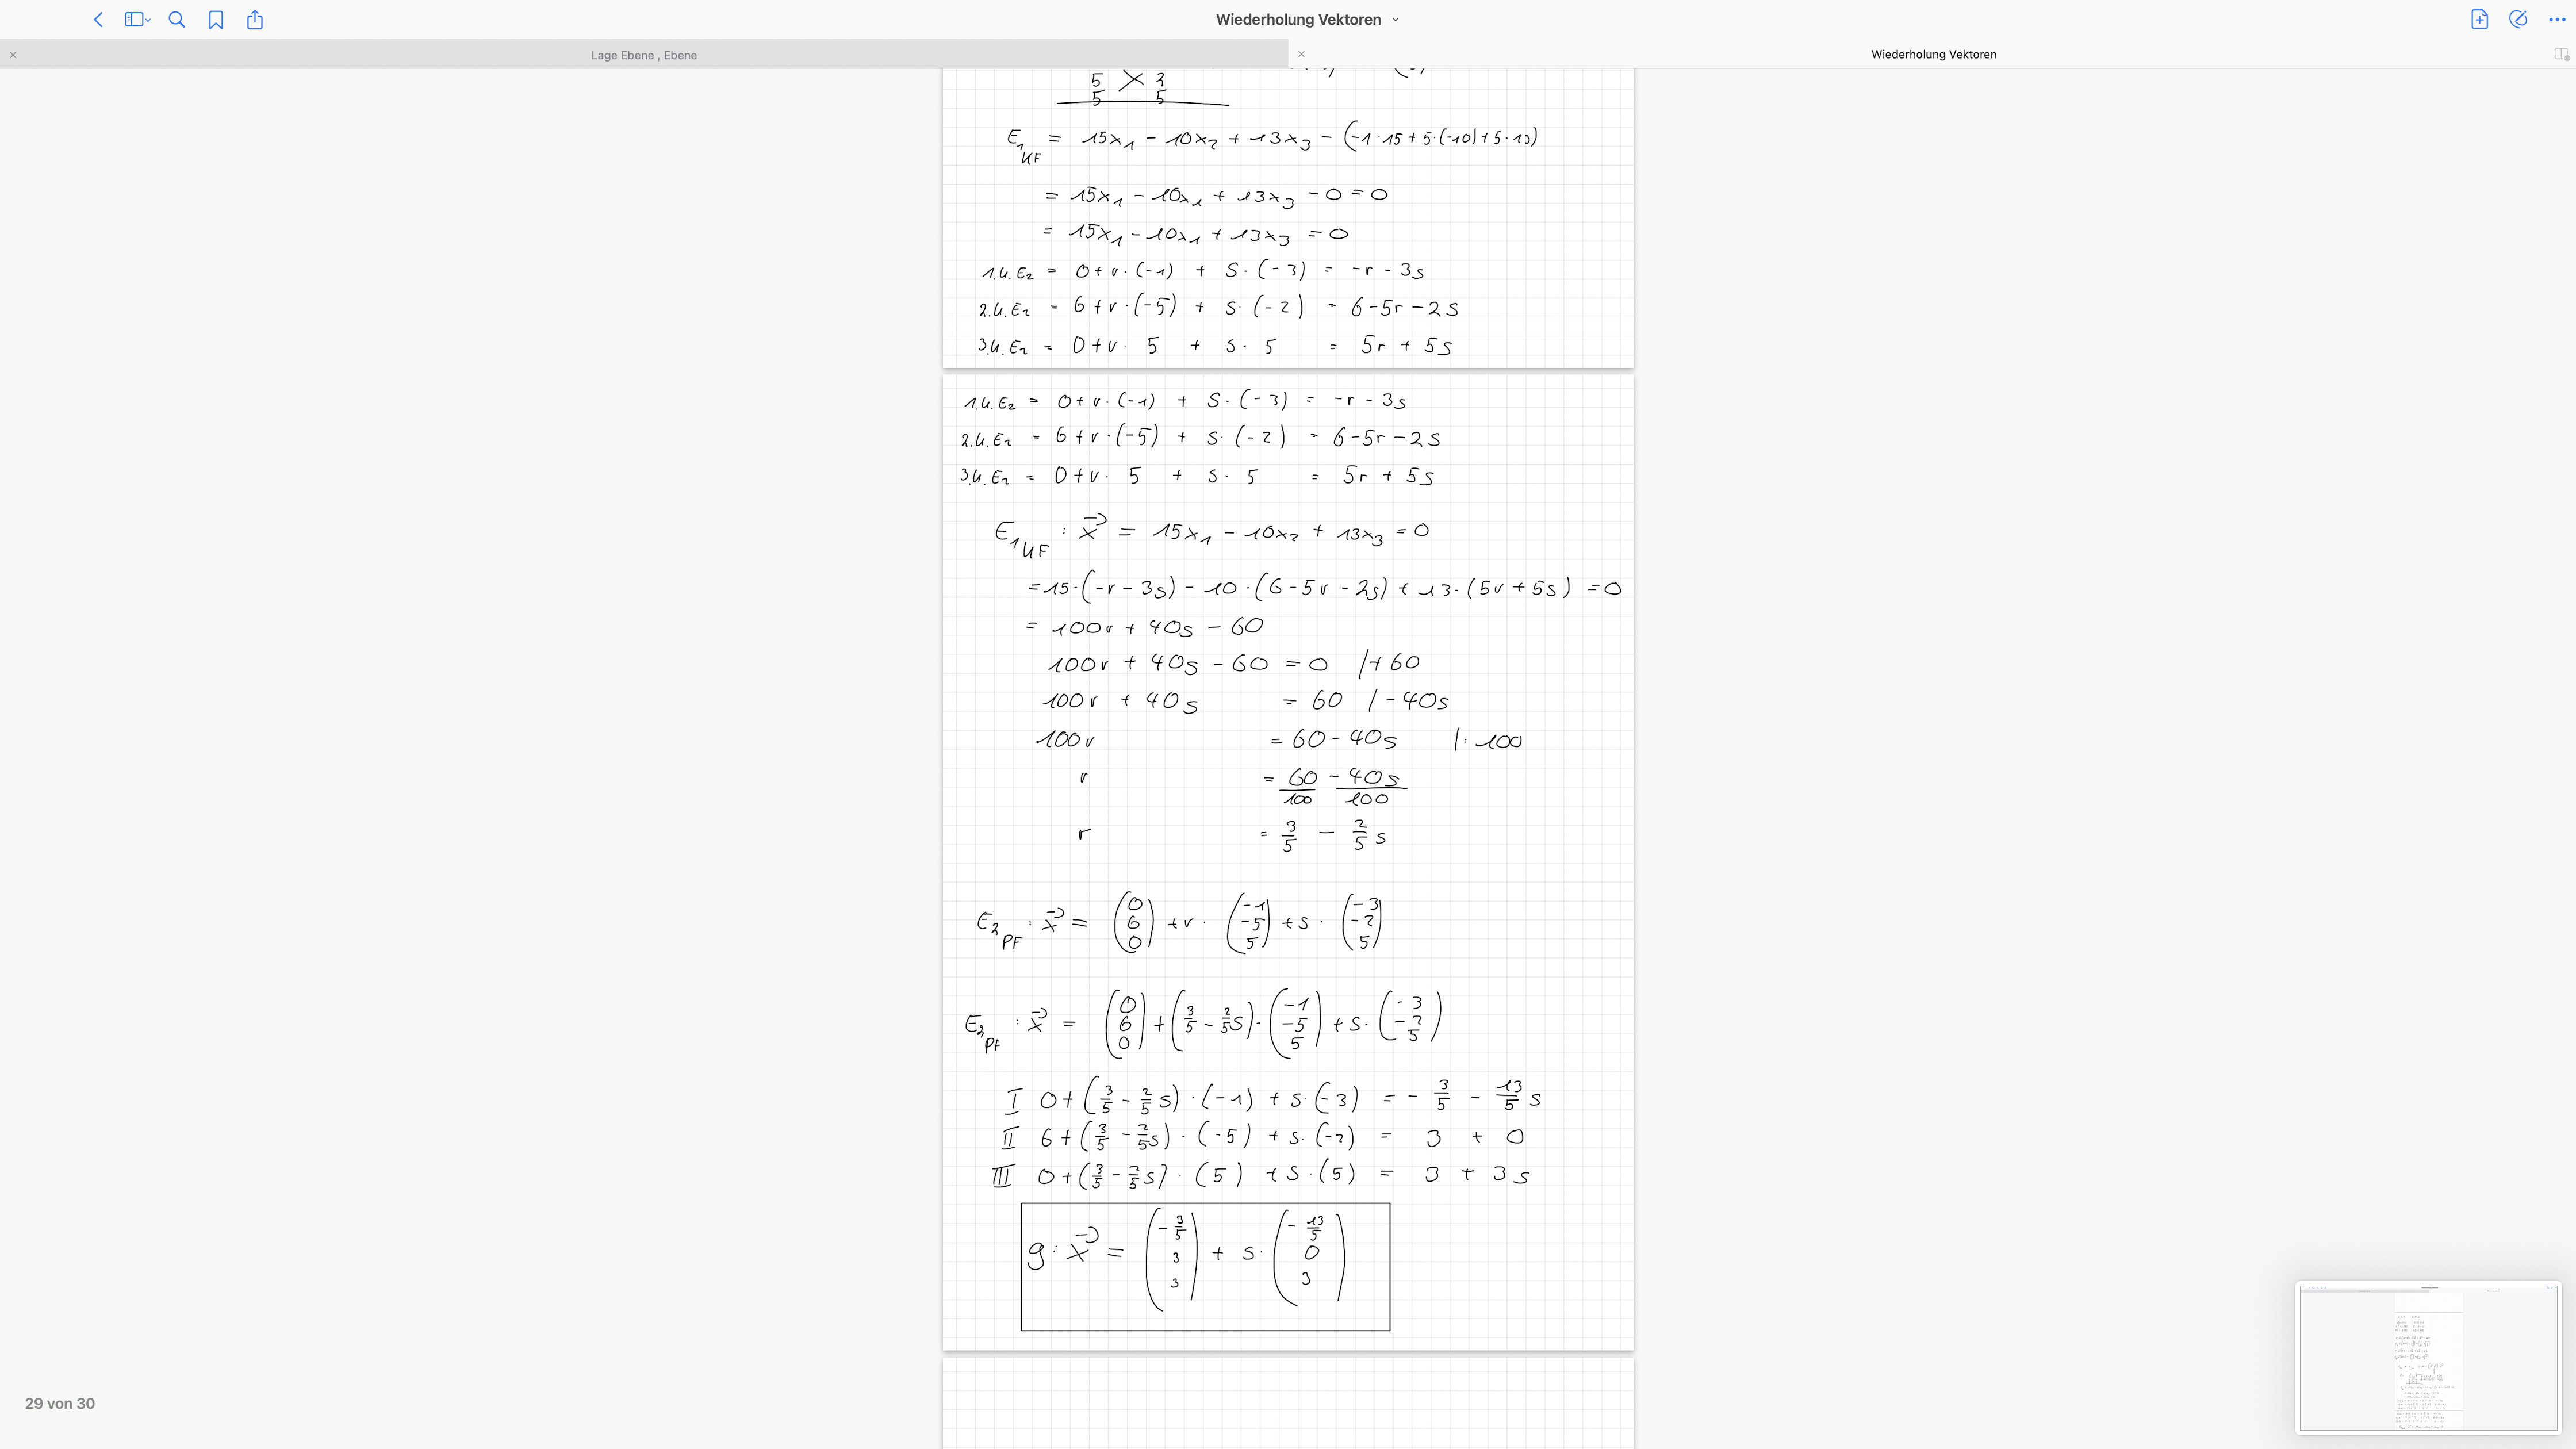 Wiederholung Vektoren
Lage Ebene , Ebene
Wiederholung Vektoren
5 3
5 5
E₁ KF = 15x₁ - 10x₂ + 13x₃ - (-1·15 + 5·(-10) + 5·13)
= 15x₁ - 10x₁ + 13x₃ - 0 = 0
= 15x₁ - 10x₁ + 13x₃ = 0
1.K.E₂ = 0 + r·(-1) + s·(-3) = -r - 3s
2.K.E₂ = 6 + r·(-5) + s·(-2) = 6 - 5r - 2s
3.K.E₂ = 0 + r· 5 + s· 5 = 5r + 5s
1.K.E₂ = 0 + r·(-1) + s·(-3) = -r - 3s
2.K.E₂ = 6 + r·(-5) + s·(-2) = 6 - 5r - 2s
3.K.E₂ = 0 + r· 5 + s· 5 = 5r + 5s
E₁ KF : x⃗ = 15x₁ - 10x₂ + 13x₃ = 0
= 15·(-r - 3s) - 10·(6 - 5r - 2s) + 13·(5r + 5s) = 0
= 100r + 40s - 60
100r + 40s - 60 = 0 /+ 60
100r + 40s = 60 / - 40s
100r = 60 - 40s |: 100
r = 60/100 - 40s/100
r = 3/5 - 2/5 s
E₂ PF : x⃗ = (0 6 0) + r · (-1 -5 5) + s · (-3 -2 5)
E₂ PF : x⃗ = (0 6 0) + (3/5 - 2/5 s) · (-1 -5 5) + s · (-3 -2 5)
I 0 + (3/5 - 2/5 s) · (-1) + s·(-3) = - 3/5 - 13/5 s
II 6 + (3/5 - 2/5 s) · (-5) + s·(-2) = 3 + 0
III 0 + (3/5 - 2/5 s) · (5) + s·(5) = 3 + 3s
g : x⃗ = (-3/5 3 3) + s · (-13/5 0 3)
29 von 30